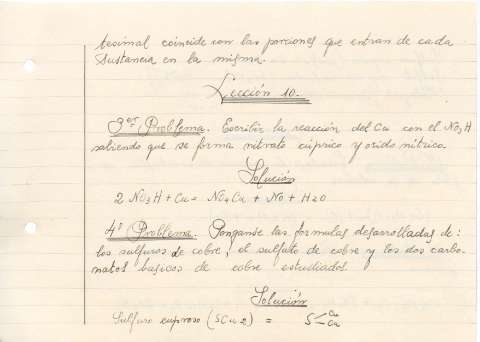 tesimal coincide con las porciones que entran de cada
sustancia en la misma.
Lección 10..
3er Problema. Escribir la reacción del Cu con el NO3H
sabiendo que se forma nitrato cúprico y oxido nítrico.
Solución
2 NO3H + Cu = NO4Cu + NO + H2O
4º Problema. Ponganse las formulas desarrolladas de:
los sulfuros de cobre, el sulfato de cobre y los dos carbo-
natos basicos de cobre estudiados.
Solución
Sulfuro cuproso (SCu2) = S Cu Cu